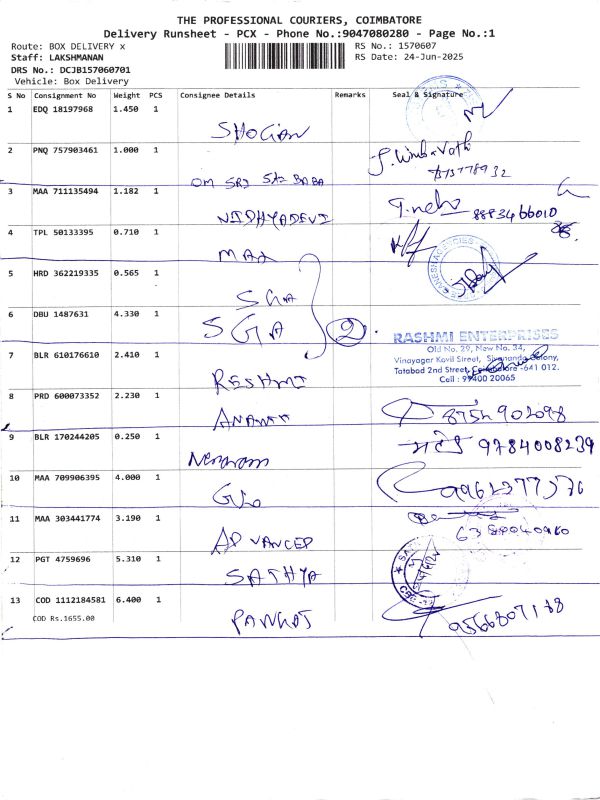 THE PROFESSIONAL COURIERS, COIMBATORE
Delivery Runsheet - PCX - Phone No.:9047080280 - Page No.:1
Route: BOX DELIVERY x RS No.: 1570607
Staff: LAKSHMANAN RS Date: 24-Jun-2025
DRS No.: DCJB157060701
Vehicle: Box Delivery
S No Consignment No Weight PCS Consignee Details Remarks Seal & Signature
1 EDQ 18197968 1.450 1
SHOGIAN
2 PNQ 757903461 1.000 1
OM SRI SAI BABA
3 MAA 711135494 1.182 1
NIDHYADEVI 8883466010
4 TPL 50133395 0.710 1
MAX
5 HRD 362219335 0.565 1
SGA
6 DBU 1487631 4.330 1
SGA 2
RASHMI ENTERPRISES
Old No. 29, New No. 34,
7 BLR 610176610 2.410 1 Vinayagar Kovil Street, Sivananda Colony,
Tatabad 2nd Street, Coimbatore -641 012.
RESHMI Cell : 99400 20065
8 PRD 600073352 2.230 1
ANANTH 8754902098
9 BLR 170244205 0.250 1 9784008239
10 MAA 709906395 4.000 1 9962377376
11 MAA 303441774 3.190 1
ADVANCED
12 PGT 4759696 5.310 1
SATHYA
13 COD 1112184581 6.400 1
COD Rs.1655.00 PANKAJ